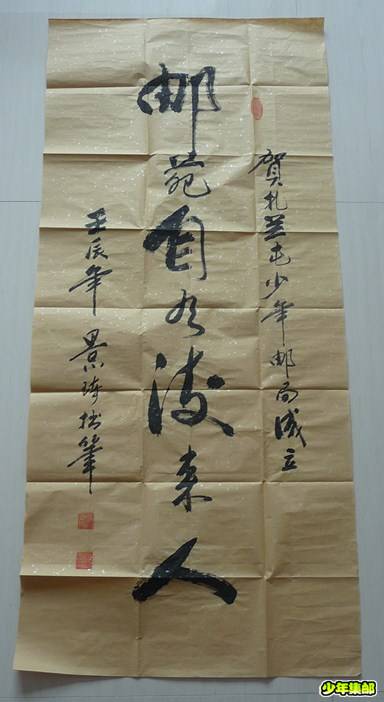 贺扎兰屯少年邮局成立
邮苑自有后来人
壬辰年 景琦拙笔
少年集邮